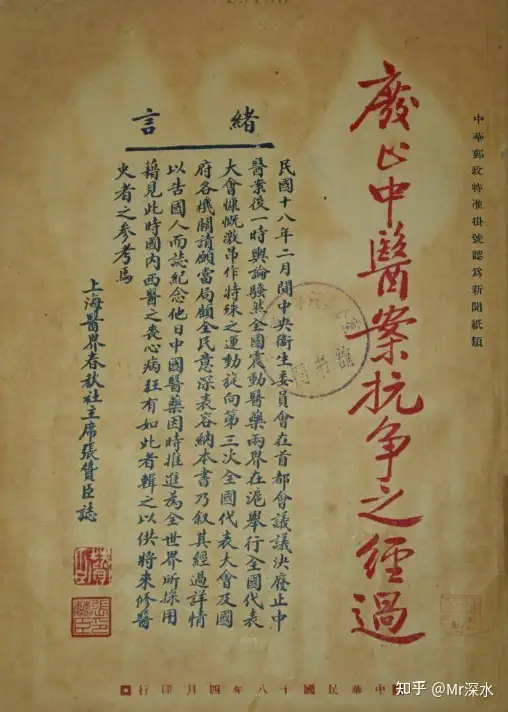 中華郵政特准掛號認爲新聞紙類
廢止中醫案抗争之經過
緒言
民國十八年二月間中央衛生委員會在首都會議議決廢止中
醫案後一時輿論騷然全國震動醫藥兩界在滬舉行全國代表
大會慷慨激昂作特殊之運動旋向第三次全國代表大會及國
府各機關請願當局顧全民意深表容納本書乃叙其經過詳情
以告國人而誌紀念他日中國醫藥因時推進為全世界所採用
藉見此時國内西醫之喪心病狂有如此者輯之以供將來修醫
史者之參考焉
上海醫界春秋社主席張贊臣誌
中華民國十八年四月印行
知乎 @Mr深水